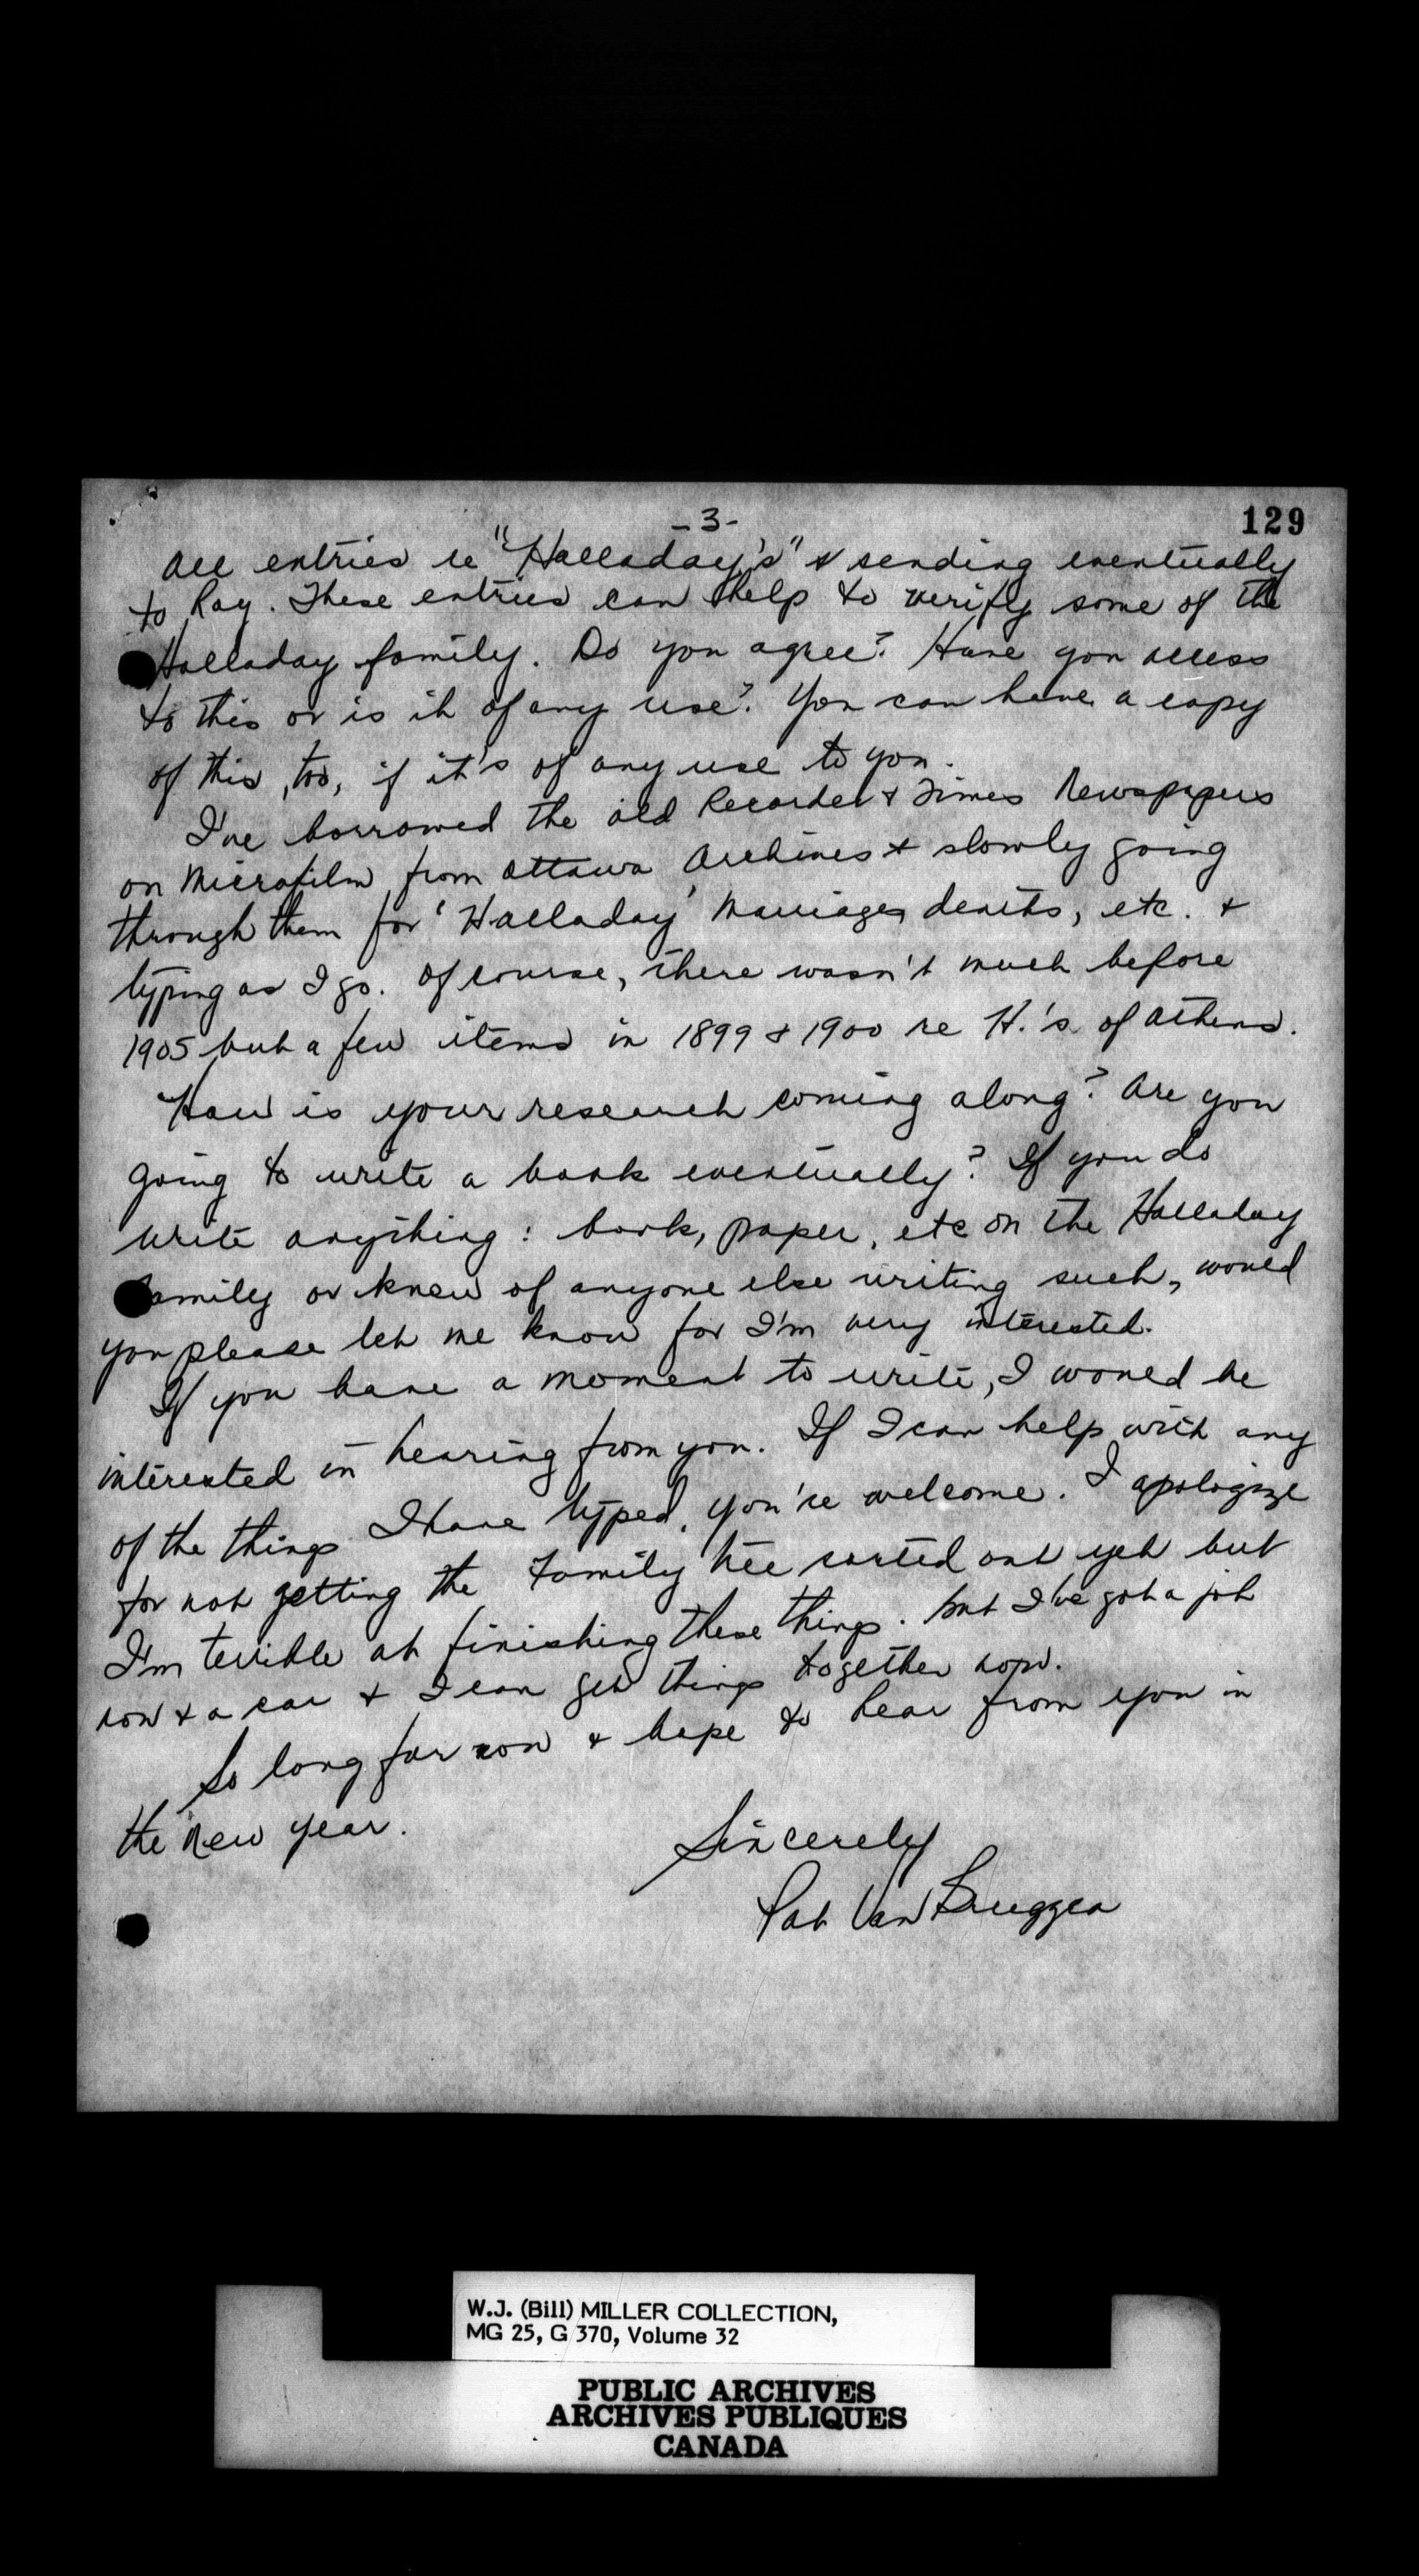 -3-
129
All entries re "Halladay's" & sending eventually
to Ray. These entries can help to verify some of the
Halladay family. Do you agree? Have you access
to this or is it of any use? You can have a copy
of this, too, if it's of any use to you.
I've borrowed the old Recorder & Times Newspapers
on Microfilm from Ottawa Archives & slowly going
through them for 'Halladay' Marriages, deaths, etc. &
typing as I go. Of course, there wasn't much before
1905 but a few items in 1899 & 1900 re H.'s of Athens.
How is your research coming along? Are you
going to write a book eventually? If you do
write anything: book, paper, etc on the Halladay
family or know of anyone else writing such, would
you please let me know for I'm very interested.
If you have a moment to write, I would be
interested in hearing from you. If I can help with any
of the things I have typed, you're welcome. I apologize
for not getting the family tree sorted out yet but
I'm terrible at finishing these things. But I've got a job
now & a car & I can get things together now.
So long for now & hope to hear from you in
the new year.
Sincerely
Pat Van Bruggen
W.J. (Bill) MILLER COLLECTION,
MG 25, G 370, Volume 32
PUBLIC ARCHIVES
ARCHIVES PUBLIQUES
CANADA